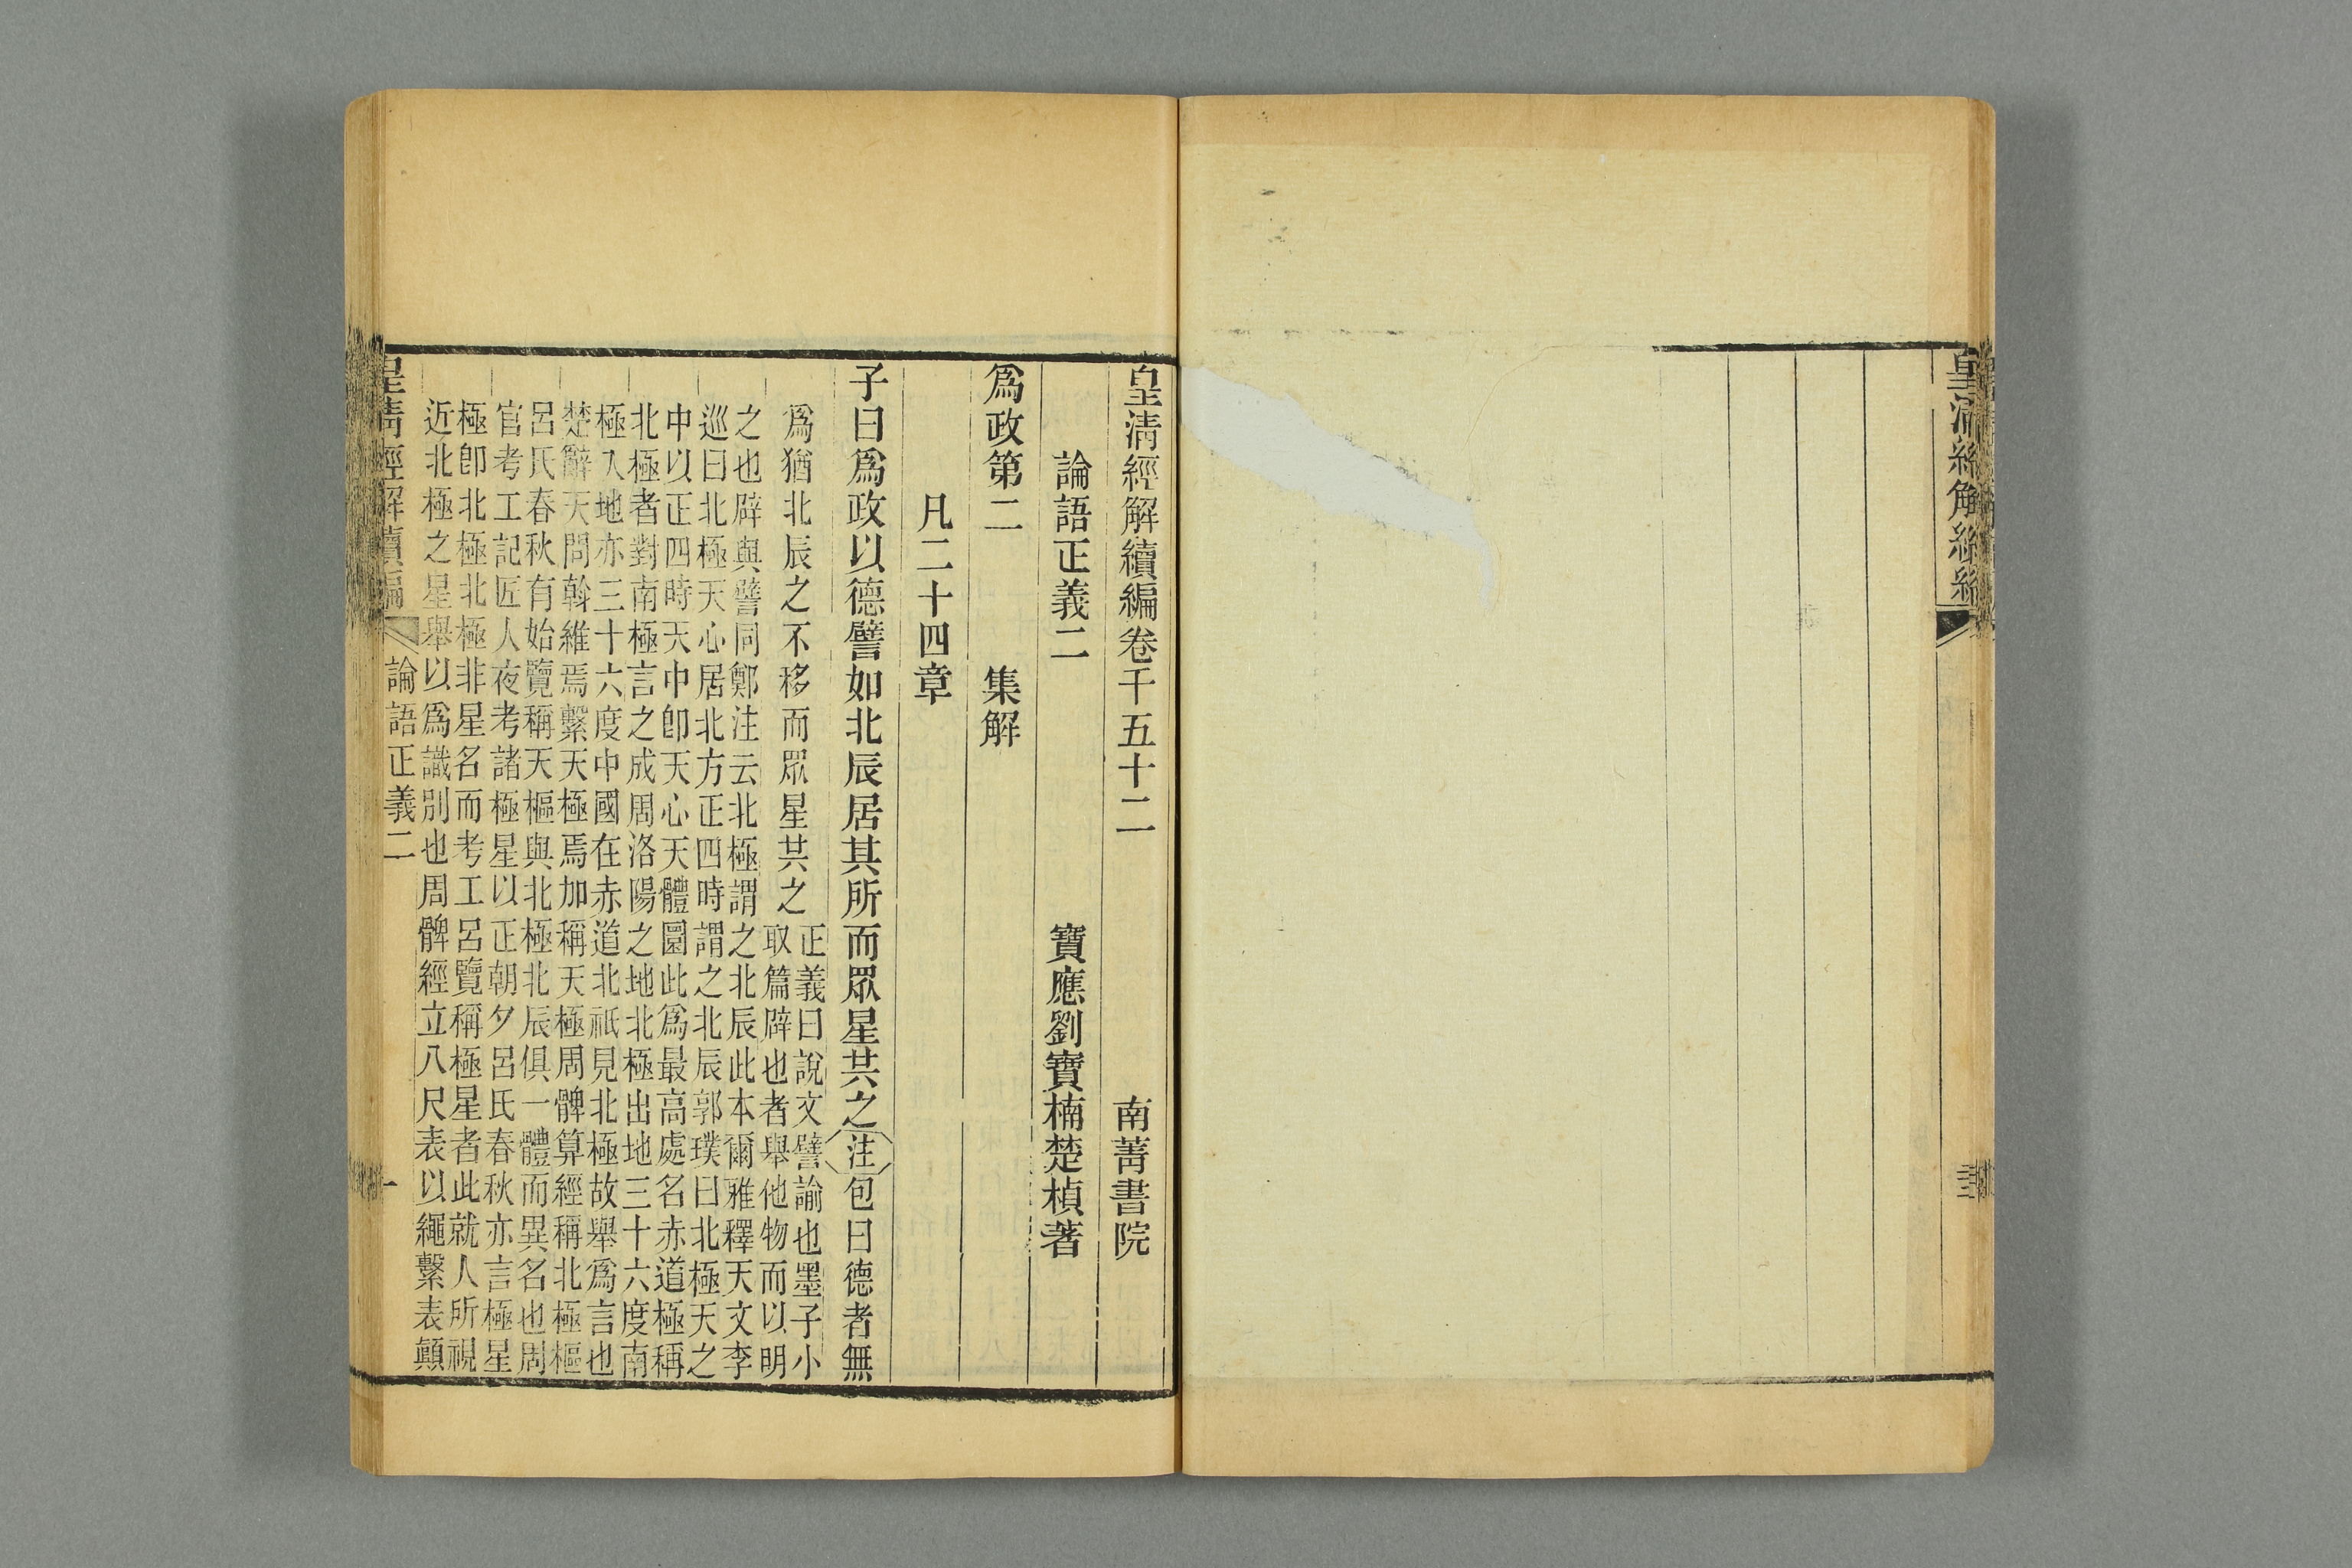 皇清經解續編卷千五十二　南菁書院
論語正義二　寶應劉寶楠楚楨著
爲政第二　集解
凡二十四章
子曰爲政以德譬如北辰居其所而眾星共之注包曰德者無
爲猶北辰之不移而眾星共之
正義曰說文譬諭也墨子小
取篇辟也者舉他物而以明
之也辟與譬同鄭注云北極謂之北辰此本爾雅釋天文李
巡曰北極天心居北方正四時謂之北辰郭璞曰北極天之
中以正四時天中卽天心天體圜此爲最高處名赤道極稱
北極者對南極言之成周洛陽之地北極出地三十六度南
極入地亦三十六度中國在赤道北祇見北極故舉爲言也
楚辭天問斡維焉繫天極焉加稱天極周髀算經稱北極樞
呂氏春秋有始覽稱天樞與北極北辰俱一體而異名也周
官考工記匠人夜考諸極星以正朝夕呂氏春秋亦言極星
極卽北極北極非星名而考工呂覽稱極星者此就人所視
近北極之星舉以爲識別也周髀經立八尺表以繩繫表顛
皇清經解續編　論語正義二　一